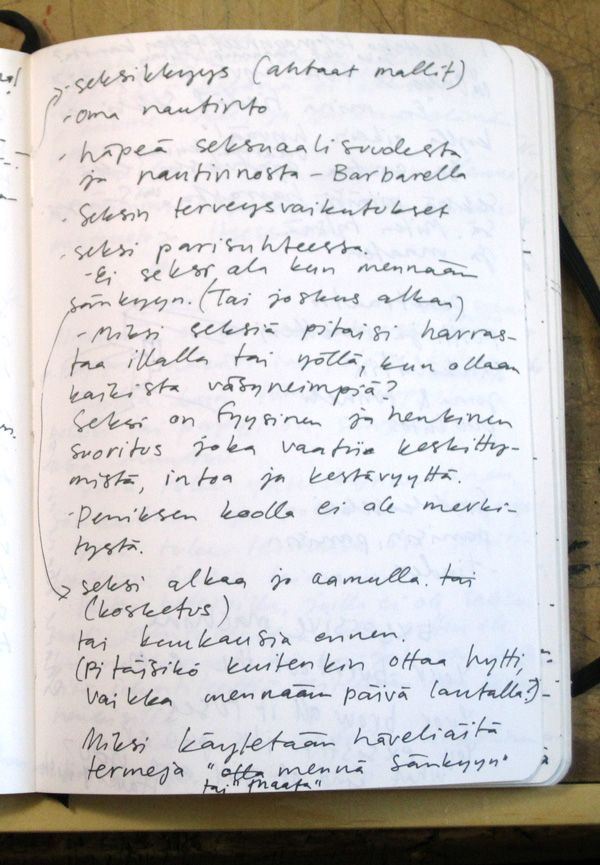 - seksikkyys (ahtaat mallit)
- oma nautinto
- häpeä seksuaalisuudesta
ja nautinnosta - Barbarella
- Seksin terveysvaikutukset
- seksi parisuhteessa.
- Ei seksi ala kun mennään
sänkyyn. (Tai joskus alkaa)
- Miksi seksiä pitäisi harras-
taa illalla tai yöllä, kun ollaan
kaikista väsyneimpiä?
Seksi on fyysinen ja henkinen
suoritus joka vaatii keskitty-
mistä, intoa ja kestävyyttä.
- Peniksen koolla ei ole merki-
tystä.
seksi alkaa jo aamulla. tai
(kosketus)
tai kuukausia ennen.
(Pitäisikö kuitenkin ottaa hytti,
vaikka mennään päivälautalla?)
Miksi käytetään häveliäitä
termejä "olla mennä sänkyyn"
tai "maata"